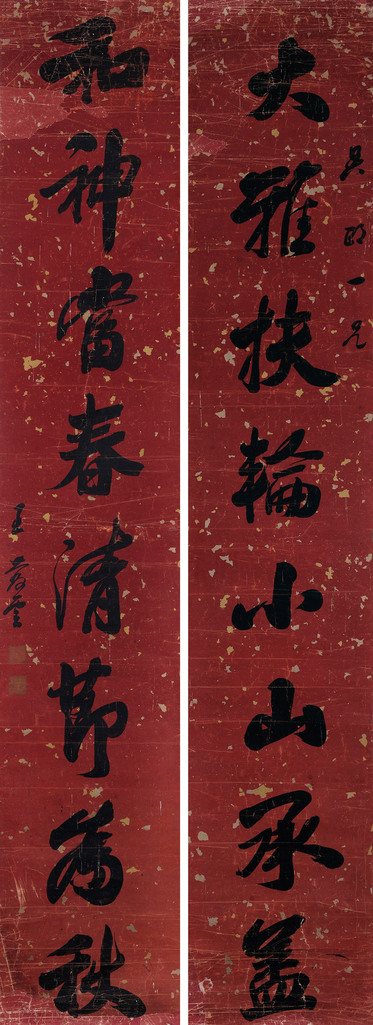 大雅扶輪小山承蓋
一兄
和神當春清節為秋
王